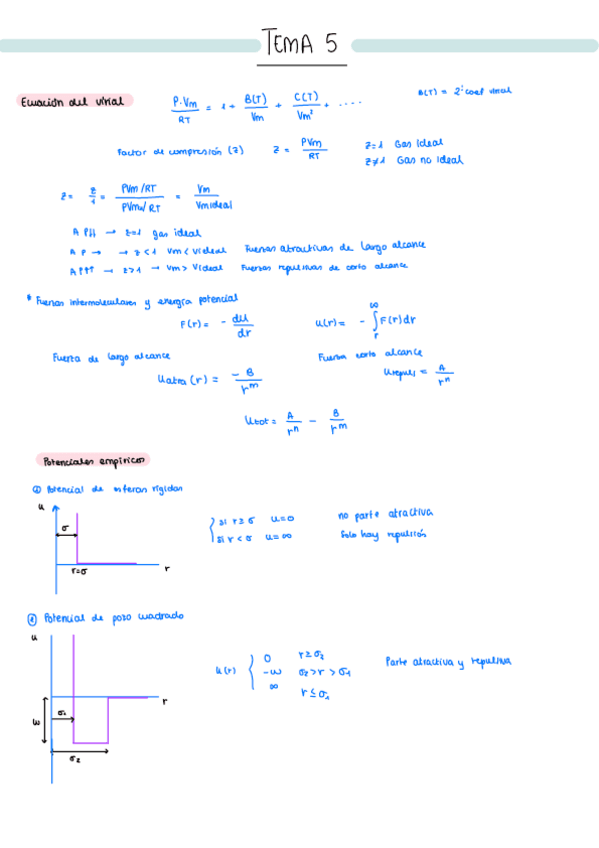 TEMA 5
Ecuación del virial
P·Vm/RT = 1 + B(T)/Vm + C(T)/Vm² + ....
B(T) = 2º coef virial
Factor de compresión (Z) Z = PVm/RT
Z=1 Gas ideal
Z≠1 Gas no ideal
Z = Z/1 = PVm/RT / PVm/RT = Vm/Vmideal
A P↓↓ → Z=1 gas ideal
A P → → Z<1 Vm < Videal Fuerzas atractivas de largo alcance
A P↑↑ → Z>1 → Vm > Videal Fuerzas repulsivas de corto alcance
* Fuerzas intermoleculares y energía potencial
F(r) = - du/dr
u(r) = - ∫ᵣ^∞ F(r)dr
Fuerza de largo alcance
Fuerza corto alcance
Uatra(r) = -B/r^m
Urepul = A/r^n
Utot = A/r^n - B/r^m
Potenciales empíricos
① Potencial de esferas rígidas
u
σ
r=σ
r
si r≥σ u=0 no parte atractiva
si r<σ u=∞ Solo hay repulsión
② Potencial de pozo cuadrado
u
r
w
σ₁
σ₂
u(r)
0 r≥σ₂
-w σ₂>r>σ₁
∞ r≤σ₁
Parte atractiva y repulsiva